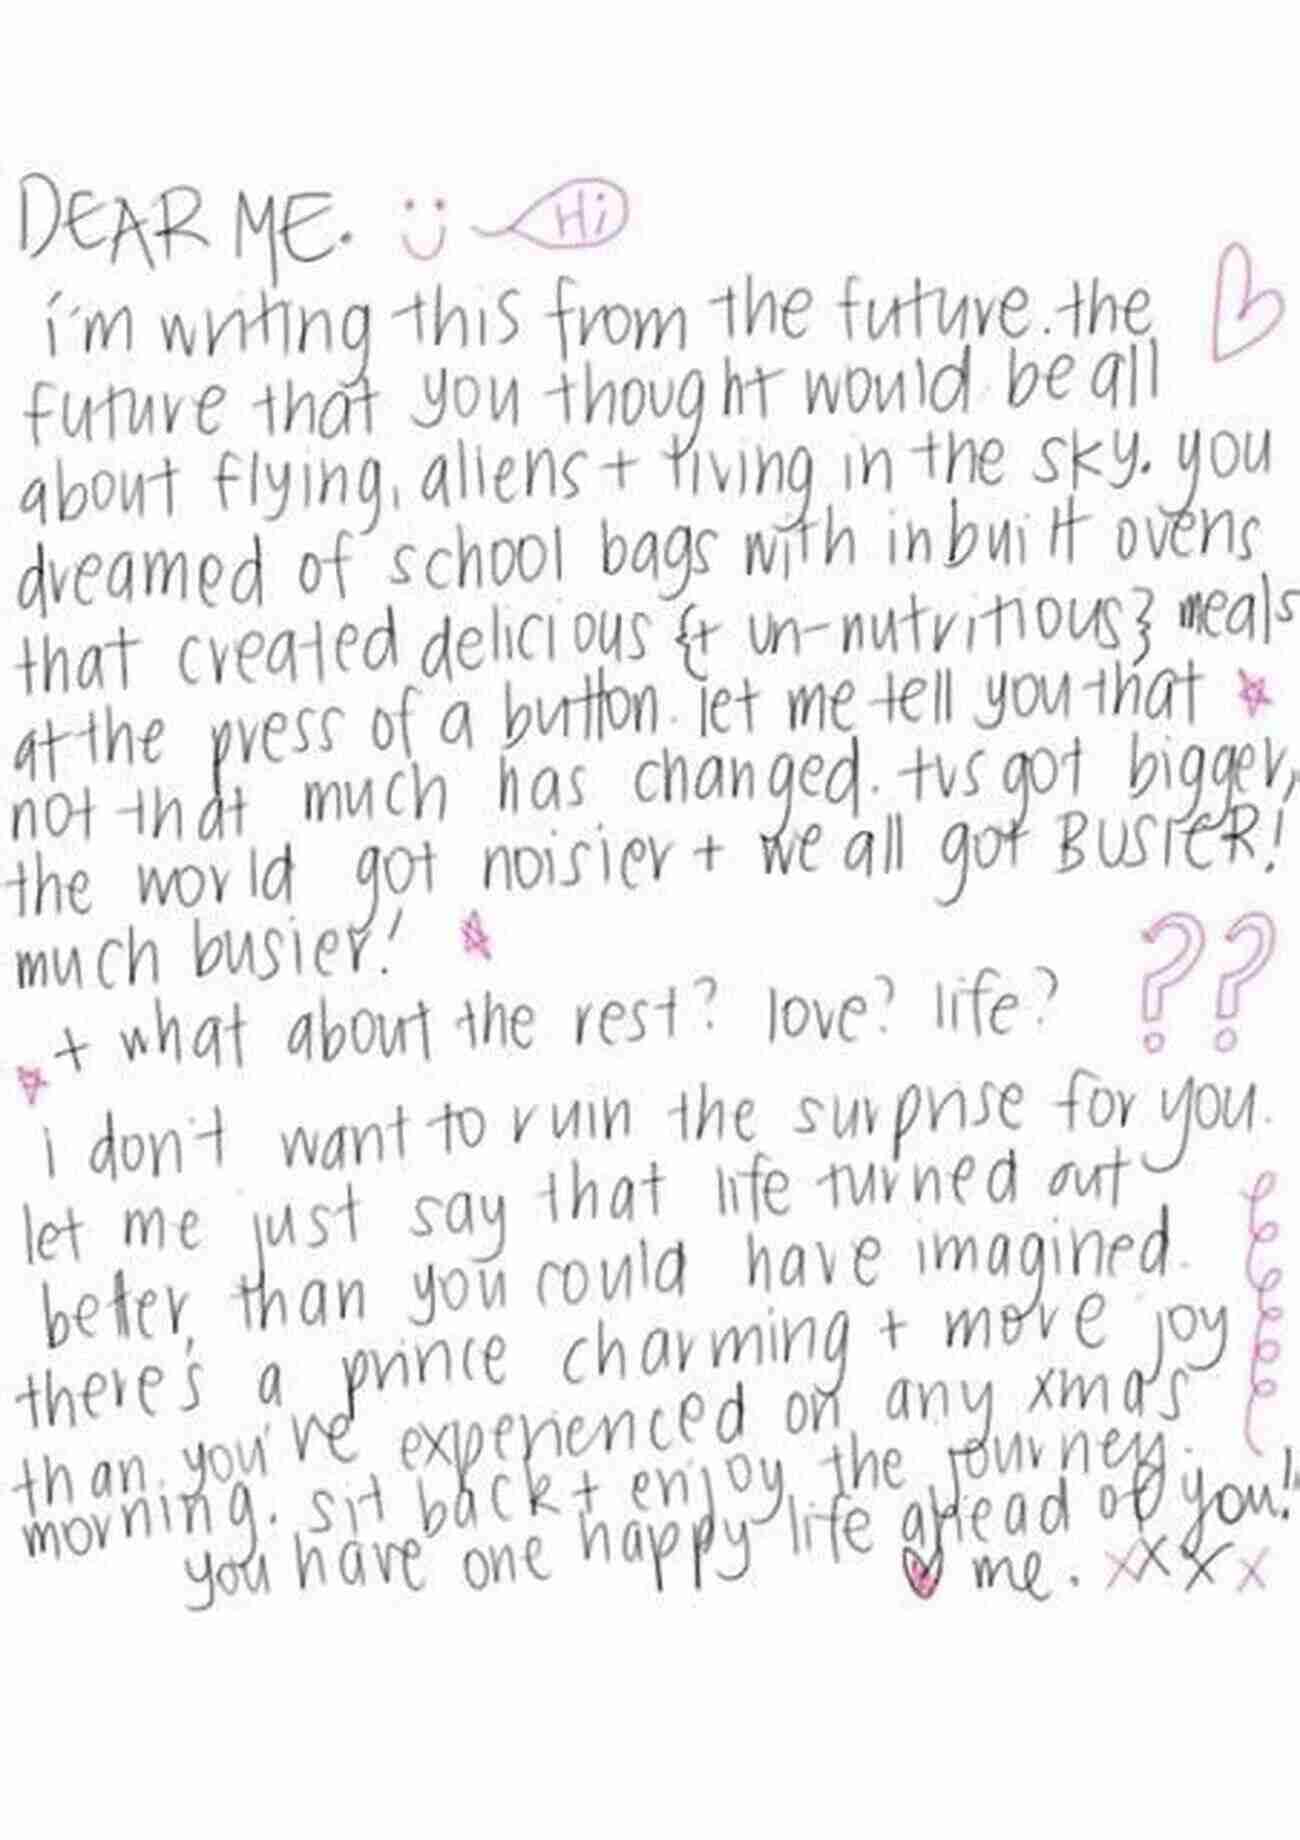 DEAR ME. Hi
i'm writing this from the future. the
future that you thought would be all
about flying, aliens + living in the sky. you
dreamed of school bags with inbuilt ovens
that created delicious {+ un-nutritious} meals
at the press of a button. let me tell you that
not that much has changed. tvs got bigger,
the world got noisier + we all got BUSIER!
much busier!
+ what about the rest? love? life? ??
i don't want to ruin the surprise for you.
let me just say that life turned out
better, than you could have imagined.
there's a prince charming + more joy
than you've experienced on any xmas
morning. sit back + enjoy the journey.
you have one happy life ahead of you!
me. xxxx